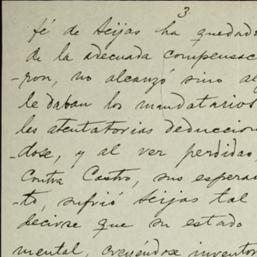 3
fé de Seijas ha quedado
de la adecuada compensac
-ron, no alcanzó sino al
le daban los mandatarios
les atentatorias deduccion
-dose, y al ver perdidas
contra Castro, sus espera
-to, sufrió Seijas tal
decirse que su estado
mental, creyéndose inventor